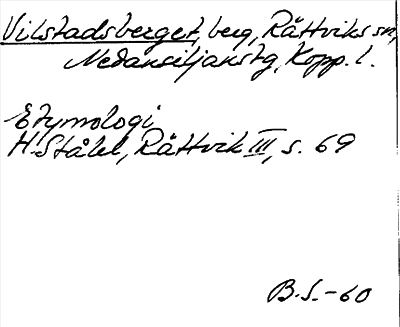 Vilstadsberget, berg, Rättviks sn,
Nedansiljanstg, Kopp. l.
Etymologi
H. Ståhl, Rättvik III, s. 69
B.S.-60